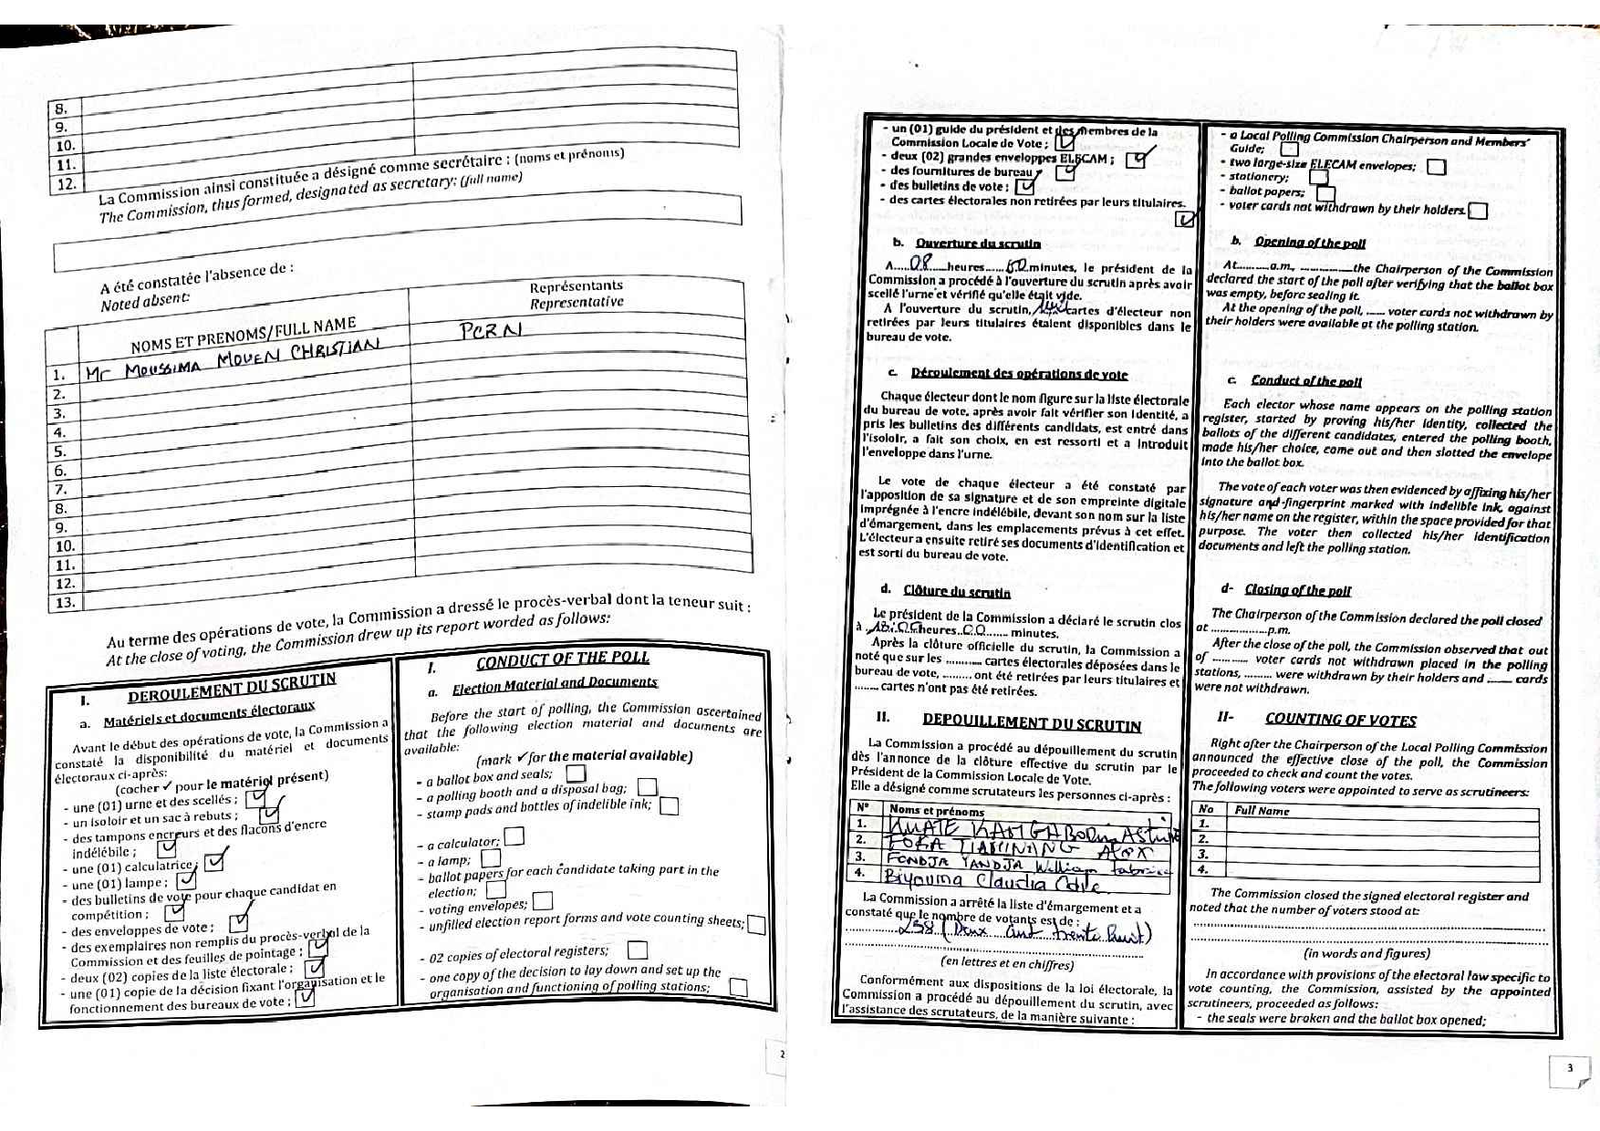 8.
9.
10.
11.
12.
La Commission ainsi constituée a désigné comme secrétaire : (noms et prénoms)
The Commission, thus formed, designated as secretary: (full name)
A été constatée l'absence de :
Noted absent:
NOMS ET PRENOMS/FULL NAME
Représentants
Representative
1. Mr MOUSSIMA MOUEN CHRISTIAN PCRN
2.
3.
4.
5.
6.
7.
8.
9.
10.
11.
12.
13.
Au terme des opérations de vote, la Commission a dressé le procès-verbal dont la teneur suit :
At the close of voting, the Commission drew up its report worded as follows:
I. DEROULEMENT DU SCRUTIN
a. Matériels et documents électoraux
Avant le début des opérations de vote, la Commission a
constaté la disponibilité du matériel et documents
électoraux ci-après:
(cocher ✓ pour le matériel présent)
- une (01) urne et des scellés ;
- un isoloir et un sac à rebuts ;
- des tampons encreurs et des flacons d'encre
indélébile ;
- une (01) calculatrice ;
- une (01) lampe ;
- des bulletins de vote pour chaque candidat en
compétition ;
- des enveloppes de vote ;
- des exemplaires non remplis du procès-verbal de la
Commission et des feuilles de pointage ;
- deux (02) copies de la liste électorale ;
- une (01) copie de la décision fixant l'organisation et le
fonctionnement des bureaux de vote ;
I. CONDUCT OF THE POLL
a. Election Material and Documents
Before the start of polling, the Commission ascertained
that the following election material and documents are
available:
(mark ✓ for the material available)
- a ballot box and seals;
- a polling booth and a disposal bag;
- stamp pads and bottles of indelible ink;
- a calculator;
- a lamp;
- ballot papers for each candidate taking part in the
election;
- voting envelopes;
- unfilled election report forms and vote counting sheets;
- 02 copies of electoral registers;
- one copy of the decision to lay down and set up the
organisation and functioning of polling stations;
2
- un (01) guide du président et des membres de la
Commission Locale de Vote ;
- deux (02) grandes enveloppes ELECAM ;
- des fournitures de bureau ;
- des bulletins de vote ;
- des cartes électorales non retirées par leurs titulaires.
b. Ouverture du scrutin
A 08 heures minutes, le président de la
Commission a procédé à l'ouverture du scrutin après avoir
scellé l'urne et vérifié qu'elle était vide.
A l'ouverture du scrutin, cartes d'électeur non
retirées par leurs titulaires étaient disponibles dans le
bureau de vote.
c. Déroulement des opérations de vote
Chaque électeur dont le nom figure sur la liste électorale
du bureau de vote, après avoir fait vérifier son identité, a
pris les bulletins des différents candidats, est entré dans
l'isoloir, a fait son choix, en est ressorti et a introduit
l'enveloppe dans l'urne.
Le vote de chaque électeur a été constaté par
l'apposition de sa signature et de son empreinte digitale
imprégnée à l'encre indélébile, devant son nom sur la liste
d'émargement, dans les emplacements prévus à cet effet.
L'électeur a ensuite retiré ses documents d'identification et
est sorti du bureau de vote.
d. Clôture du scrutin
Le président de la Commission a déclaré le scrutin clos
à heures minutes.
Après la clôture officielle du scrutin, la Commission a
noté que sur les ........... cartes électorales déposées dans le
bureau de vote, ......... ont été retirées par leurs titulaires et
....... cartes n'ont pas été retirées.
II. DEPOUILLEMENT DU SCRUTIN
La Commission a procédé au dépouillement du scrutin
dès l'annonce de la clôture effective du scrutin par le
Président de la Commission Locale de Vote.
Elle a désigné comme scrutateurs les personnes ci-après :
N° Noms et prénoms
1. KUATE KAMGA
2. FOKA
3. FONDJA YANDJA William Fabrice
4. Biyouma Claudia
La Commission a arrêté la liste d'émargement et a
constaté que le nombre de votants est de :
238 (Deux cent trente huit)
(en lettres et en chiffres)
Conformément aux dispositions de la loi électorale, la
Commission a procédé au dépouillement du scrutin, avec
l'assistance des scrutateurs, de la manière suivante :
- a Local Polling Commission Chairperson and Members'
Guide;
- two large-size ELECAM envelopes;
- stationery;
- ballot papers;
- voter cards not withdrawn by their holders.
b. Opening of the poll
At...........a.m., ..............the Chairperson of the Commission
declared the start of the poll after verifying that the ballot box
was empty, before sealing it.
At the opening of the poll, ...... voter cards not withdrawn by
their holders were available at the polling station.
c. Conduct of the poll
Each elector whose name appears on the polling station
register, started by proving his/her identity, collected the
ballots of the different candidates, entered the polling booth,
made his/her choice, came out and then slotted the envelope
into the ballot box.
The vote of each voter was then evidenced by affixing his/her
signature and fingerprint marked with indelible ink, against
his/her name on the register, within the space provided for that
purpose. The voter then collected his/her identification
documents and left the polling station.
d- Closing of the poll
The Chairperson of the Commission declared the poll closed
at .................p.m.
After the close of the poll, the Commission observed that out
of ........... voter cards not withdrawn placed in the polling
stations, ......... were withdrawn by their holders and ....... cards
were not withdrawn.
II- COUNTING OF VOTES
Right after the Chairperson of the Local Polling Commission
announced the effective close of the poll, the Commission
proceeded to check and count the votes.
The following voters were appointed to serve as scrutineers:
No Full Name
1.
2.
3.
4.
The Commission closed the signed electoral register and
noted that the number of voters stood at:
(in words and figures)
In accordance with provisions of the electoral law specific to
vote counting, the Commission, assisted by the appointed
scrutineers, proceeded as follows:
- the seals were broken and the ballot box opened;
3